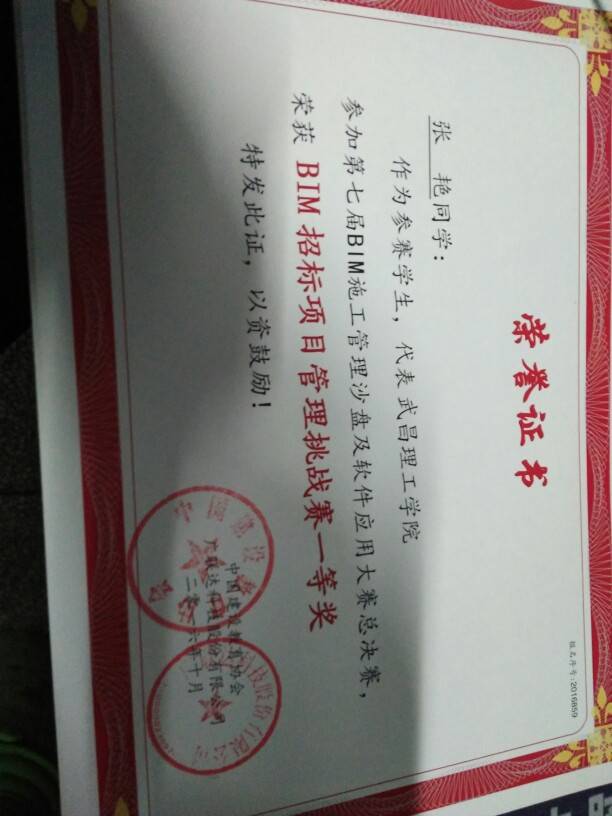 报名序号:2016859
荣誉证书
张 艳同学:
作为参赛学生,代表武昌理工学院
参加第七届BIM施工管理沙盘及软件应用大赛总决赛,
荣获 BIM 招标项目管理挑战赛一等奖
特发此证,以资鼓励!
中国建设教育协会
广联达科技股份有限公司
二零一六年十月